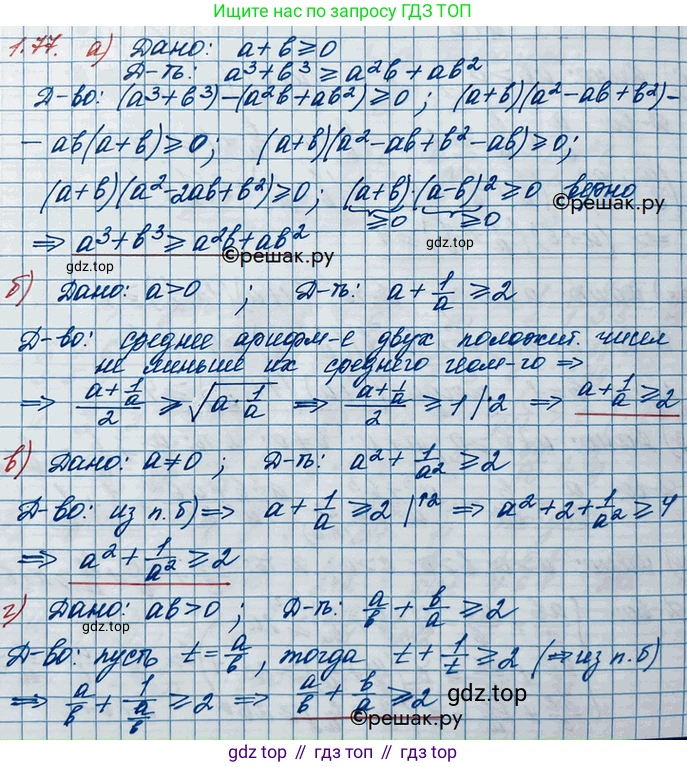 Ищите нас по запросу ГДЗ ТОП
1.77. а) Дано: a + b ≥ 0
Д-ть: a³ + b³ ≥ a²b + ab²
Д-во: (a³ + b³) - (a²b + ab²) ≥ 0 ; (a + b)(a² - ab + b²) -
- ab(a + b) ≥ 0; (a + b)(a² - ab + b² - ab) ≥ 0;
(a + b)(a² - 2ab + b²) ≥ 0; (a + b)·(a - b)² ≥ 0 верно
©решак.ру
≥0 ≥0
⇒ a³ + b³ ≥ a²b + ab²
gdz.top
©решак.ру
gdz.top
б) Дано: a > 0 ; Д-ть: a + 1/a ≥ 2
Д-во: среднее арифм-е двух положит. чисел
не меньше их среднего геом-го ⇒
⇒ (a + 1/a)/2 ≥ √(a · 1/a) ⇒ (a + 1/a)/2 ≥ 1 |·2 ⇒ a + 1/a ≥ 2
в) Дано: a ≠ 0 ; Д-ть: a² + 1/a² ≥ 2
Д-во: из п.б) ⇒ a + 1/a ≥ 2 |↑2 ⇒ a² + 2 + 1/a² ≥ 4
⇒ a² + 1/a² ≥ 2
г) Дано: ab > 0 ; Д-ть: a/b + b/a ≥ 2
gdz.top
Д-во: пусть t = a/b, тогда t + 1/t ≥ 2 (⇒ из п.б)
⇒ a/b + 1/(a/b) ≥ 2 ⇒ a/b + b/a ≥ 2
gdz.top
©решак.ру
gdz.top // гдз топ // gdz.top